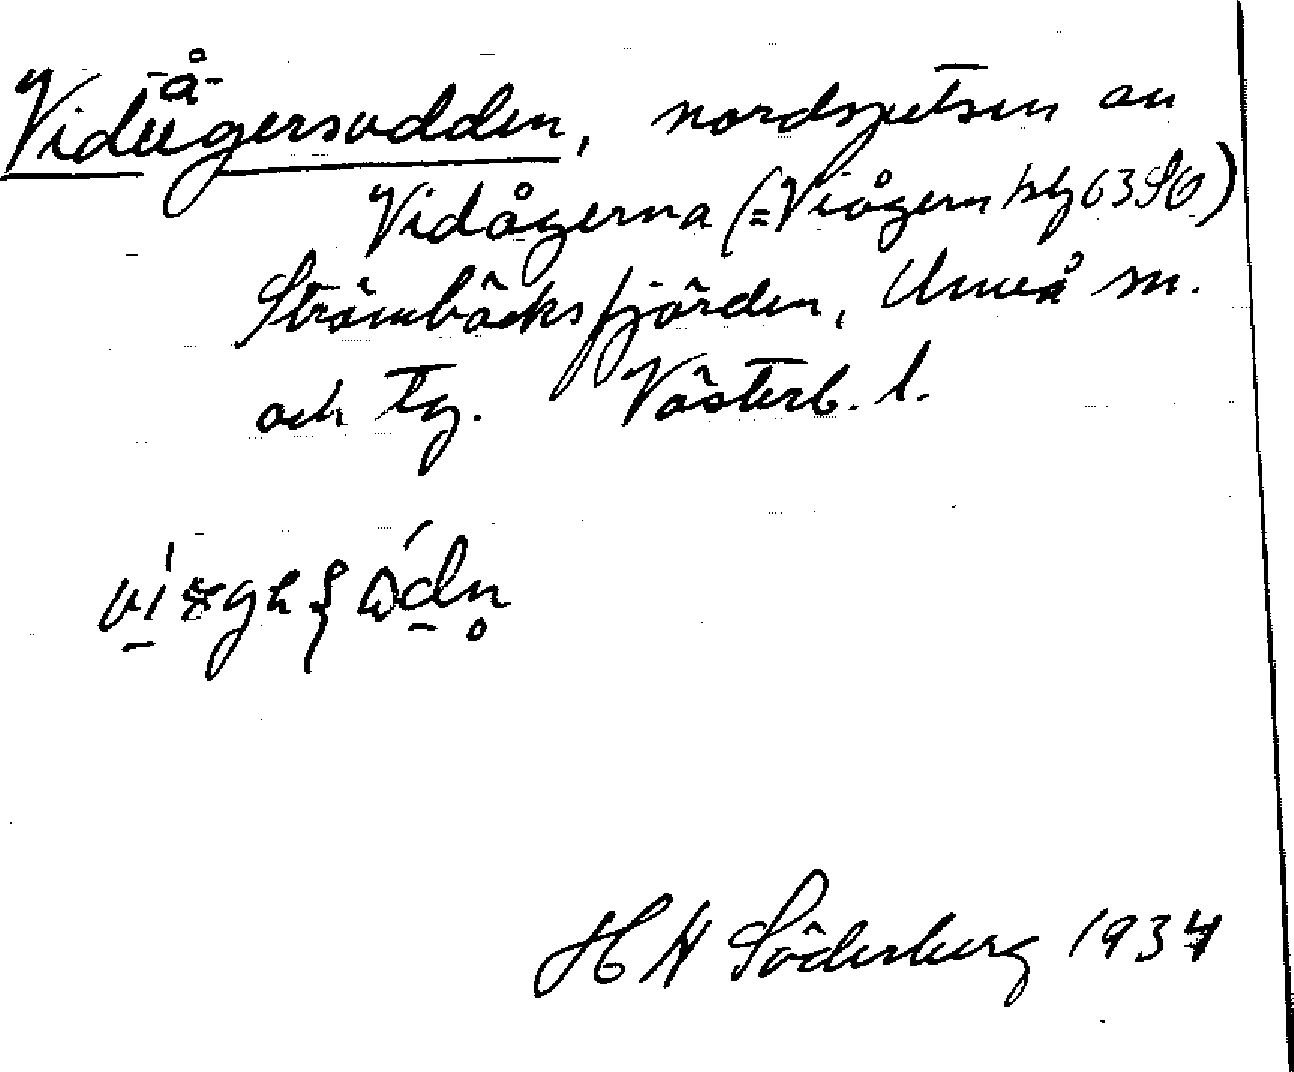 -å-
Vidügersudden, nordspetsen av
Vidågerna (= Viågern kbl 63 SO)
Strömbäcksfjärden, Umeå sn.
och tg. Västerb. l.
H N Söderberg 1934